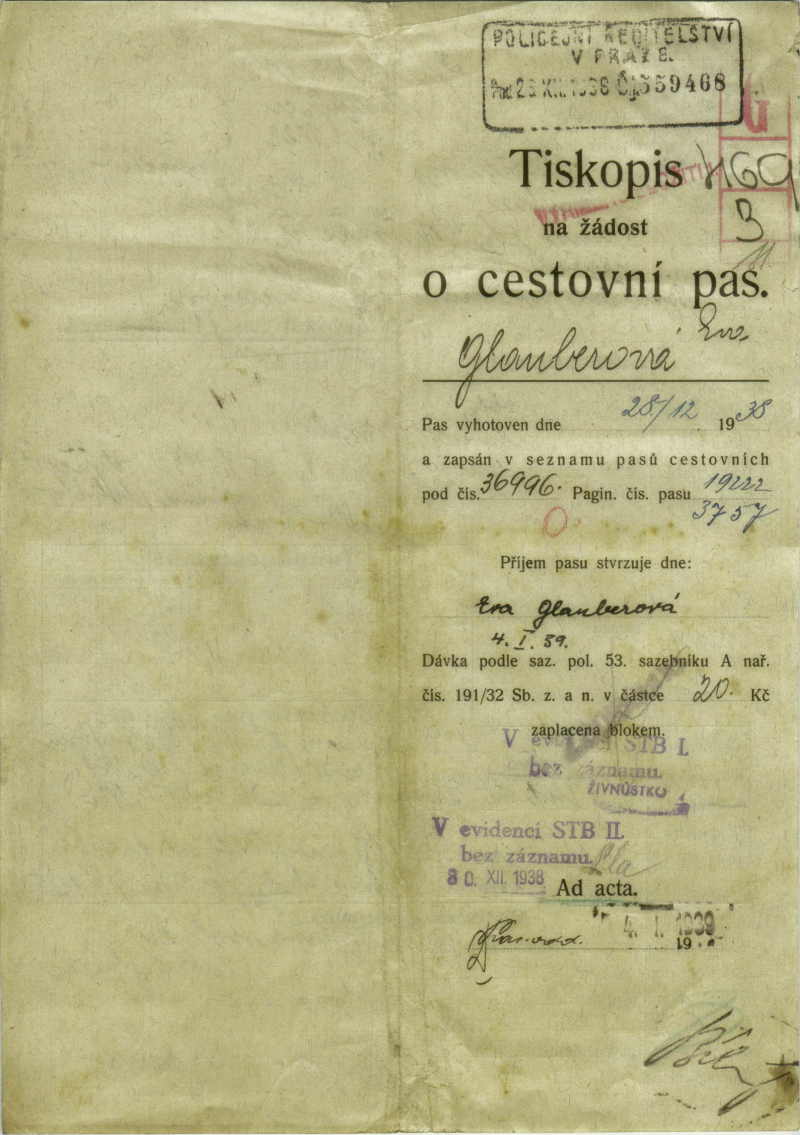 POLICEJNÍ ŘEDITELSTVÍ
V PRAZE.
XII. 1938 Čj. 559468
G
Tiskopis
na žádost
3
o cestovní pas.
Glauberová Eva
Pas vyhotoven dne 28/12 1938
a zapsán v seznamu pasů cestovních
pod čis. 36996. Pagin. čis. pasu 19222
3757
Příjem pasu stvrzuje dne:
Eva Glauberová
4. I. 39.
Dávka podle saz. pol. 53. sazebníku A nař.
čis. 191/32 Sb. z. a n. v částce 20. Kč
zaplacena blokem.
V evidenci STB I.
bez záznamu.
ŽIVNŮSTKO
V evidenci STB II.
bez záznamu.
30. XII. 1938
Ad acta.
4. I. 1939
19